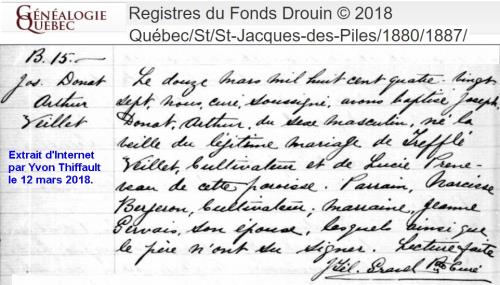 GÉNÉALOGIE
QUÉBEC
Registres du Fonds Drouin © 2018
Québec/St/St-Jacques-des-Piles/1880/1887/
B. 15.—
Jos. Donat
Arthur
Veillet
Extrait d'Internet
par Yvon Thiffault
le 12 mars 2018.
Le douze mars mil huit cent quatre-vingt
sept, nous, curé, soussigné, avons baptisé Joseph,
Donat, Arthur, du sexe masculin, né la
veille du légitime mariage de Trefflé
Veillet, Cultivateur et de Lucie Prene-
veau de cette paroisse. Parrain, Narcisse
Bergeron, Cultivateur; marraine, Jeanne
Gervais, son épouse, lesquels ainsi que
le père n'ont su signer. Lecture faite
Grenel Ptre Curé